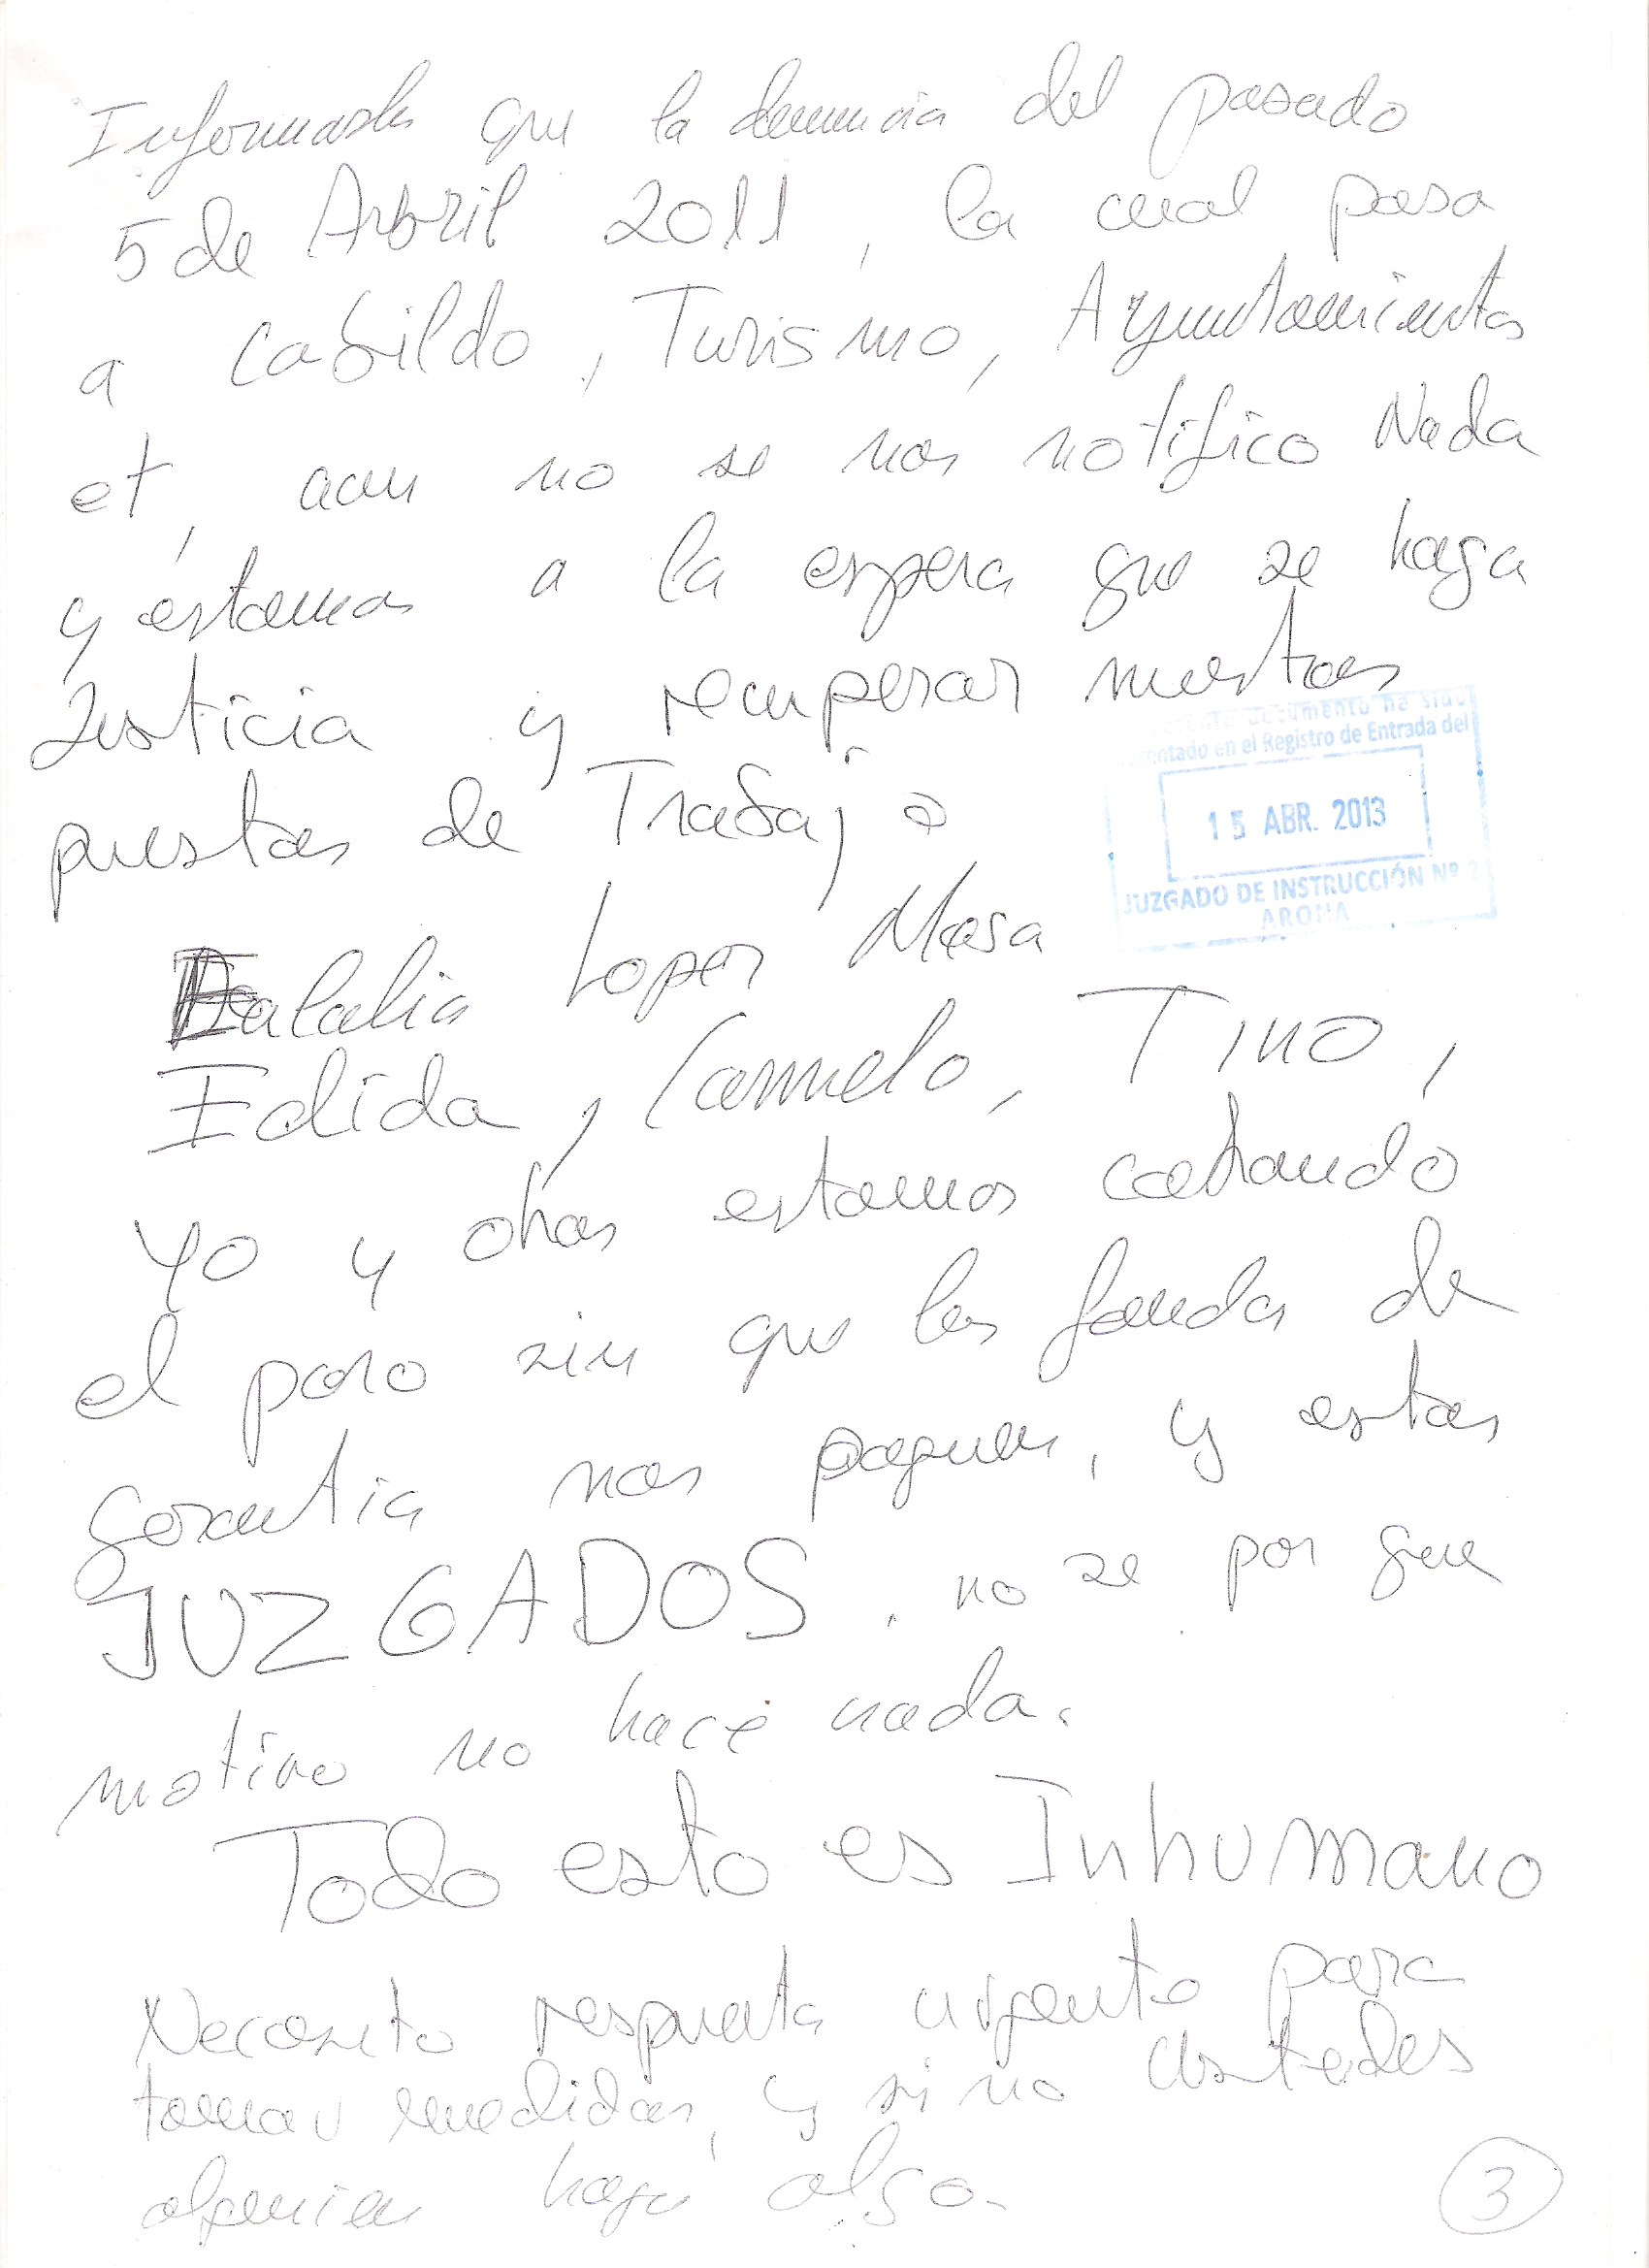 Informarle que la denuncia del pasado
5 de Arbril 2011, la cual pasa
a Cabildo, Turismo, Ayuntamientos
et, aun no se nos notifico Nada
y estamos a la espera que se haga
Justicia y recuperar nuestros
puestos de Trabajo
presente documento ha sido
presentado en el Registro de Entrada del
15 ABR. 2013
JUZGADO DE INSTRUCCIÓN Nº 2
ARONA
Ealalia Lopez Mesa
Elida, Carmelo, Tino,
Yo y otros estamos cobrando
el paro sin que los fondos de
Garantia nos paguen, y estos
JUZGADOS, no se por que
motivo no hace nada.
Todo esto es Inhumano
Necesito respuesta urgente para
tomar medidas, y si no ustedes
alguien haga algo.
3